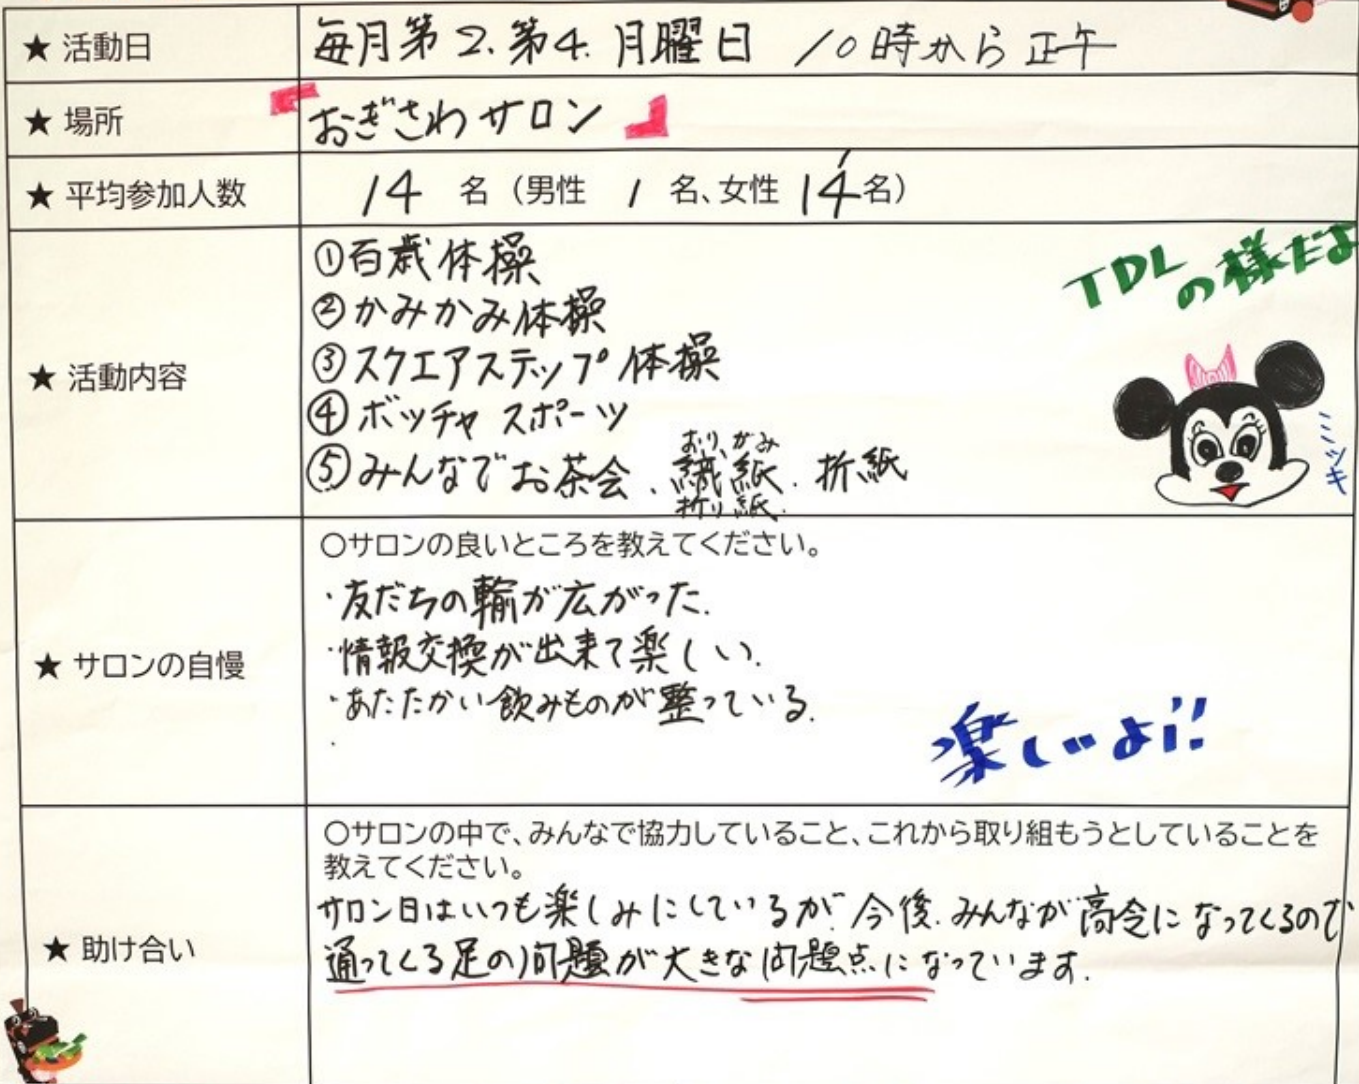 ★ 活動日
毎月第2.第4.月曜日 10時から正午
★ 場所
「おぎさわサロン」
★ 平均参加人数
14 名（男性 1 名、女性 14名）
★ 活動内容
①百歳体操
②かみかみ体操
③スクエアステップ体操
④ボッチャ スポーツ
おりがみ
⑤みんなでお茶会、紙.折紙
折り紙.
TDL
の様だよ
★ サロンの自慢
○サロンの良いところを教えてください。
・友だちの輪が広がった.
・情報交換が出来て楽しい.
・あたたかい飲みものが整っている.
・
楽しいよ!!
★ 助け合い
○サロンの中で、みんなで協力していること、これから取り組もうとしていることを
教えてください。
サロン日はいつも楽しみにしているが、今後.みんなが高令になってくるので
通ってくる足の問題が大きな問題点になっています.